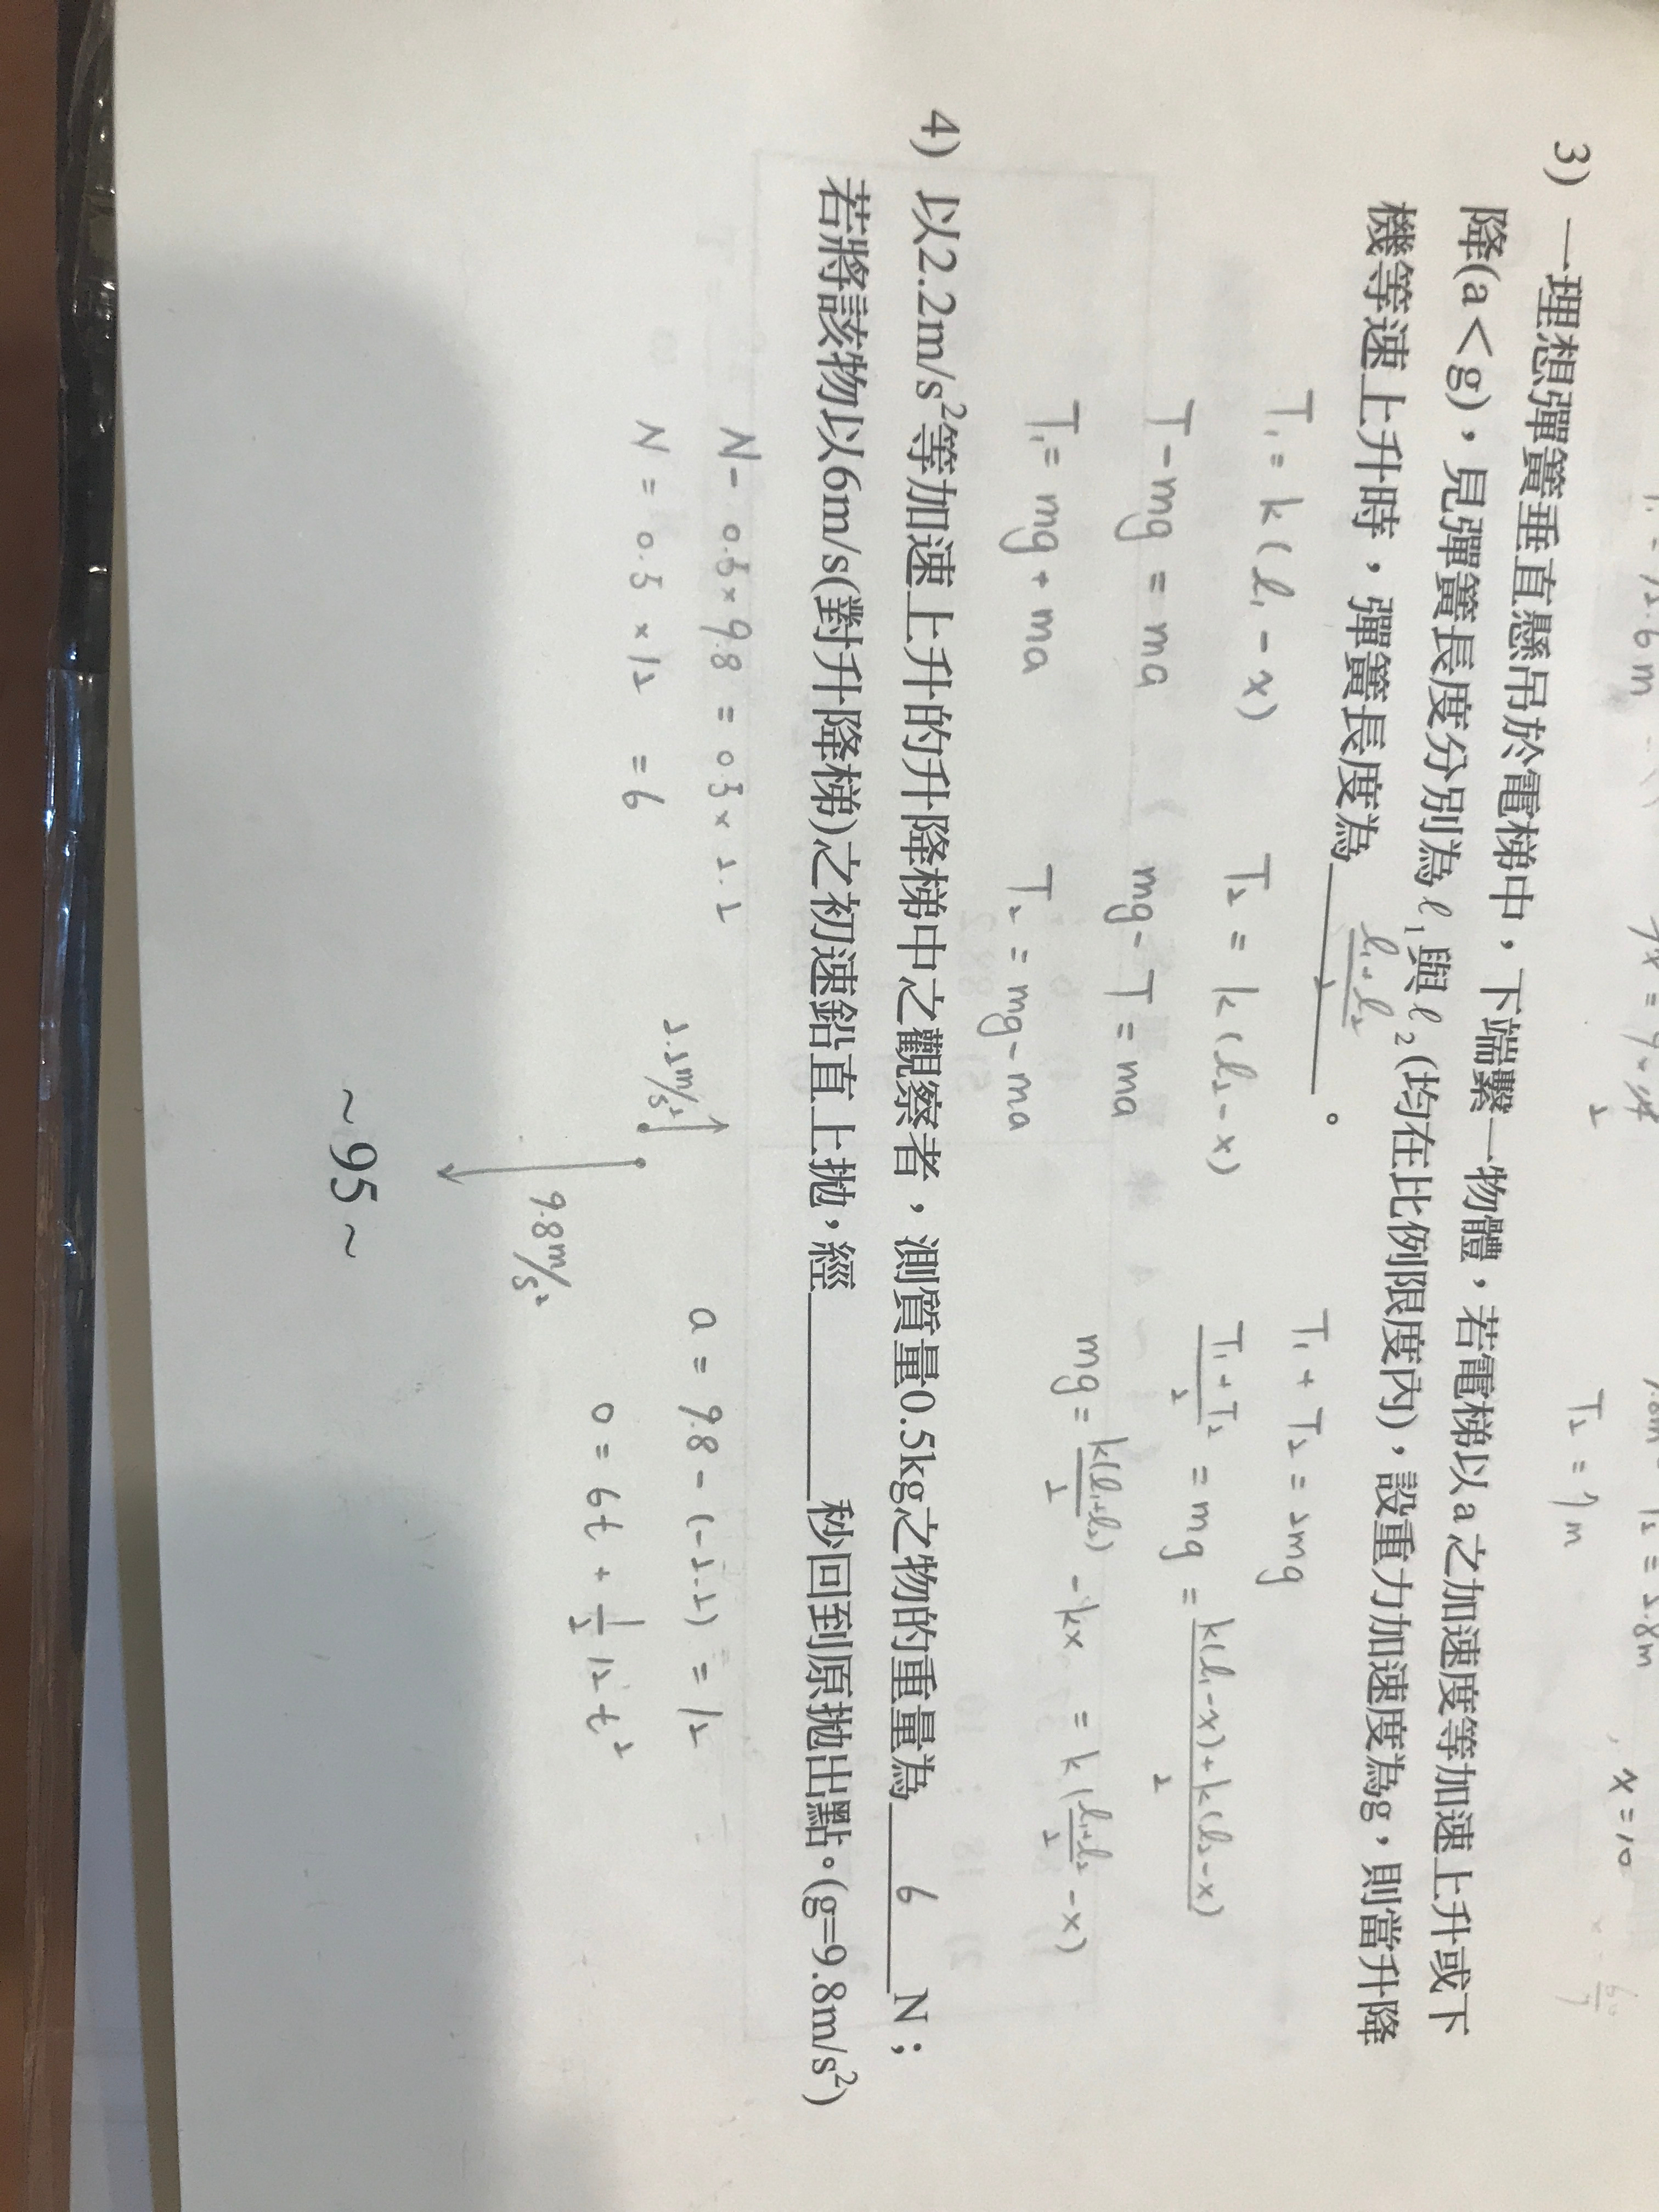 T₂ = 7m
x = 10
3) 一理想彈簧垂直懸吊於電梯中，下端繫一物體，若電梯以a之加速度等加速上升或下
降(a＜g)，見彈簧長度分別為ℓ₁與ℓ₂(均在比例限度內)，設重力加速度為g，則當升降
機等速上升時，彈簧長度為 (l₁+l₂)/2 。
T₁ = k(l₁-x) T₂ = k(l₂-x) T₁ + T₂ = 2mg
T-mg = ma mg-T = ma (T₁+T₂)/2 = mg = (k(l₁-x)+k(l₂-x))/2
T₁ = mg + ma T₂ = mg-ma mg = k(l₁+l₂)/2 - kx = k((l₁+l₂)/2 - x)
4) 以2.2m/s²等加速上升的升降梯中之觀察者，測質量0.5kg之物的重量為 6 N；
若將該物以6m/s(對升降梯)之初速鉛直上拋，經 秒回到原拋出點。(g=9.8m/s²)
N - 0.5×9.8 = 0.5×2.2
N = 0.5×12 = 6
2.2m/s²
9.8m/s²
a = 9.8-(-2.2) = 12
0 = 6t + 1/2 12t²
~95~